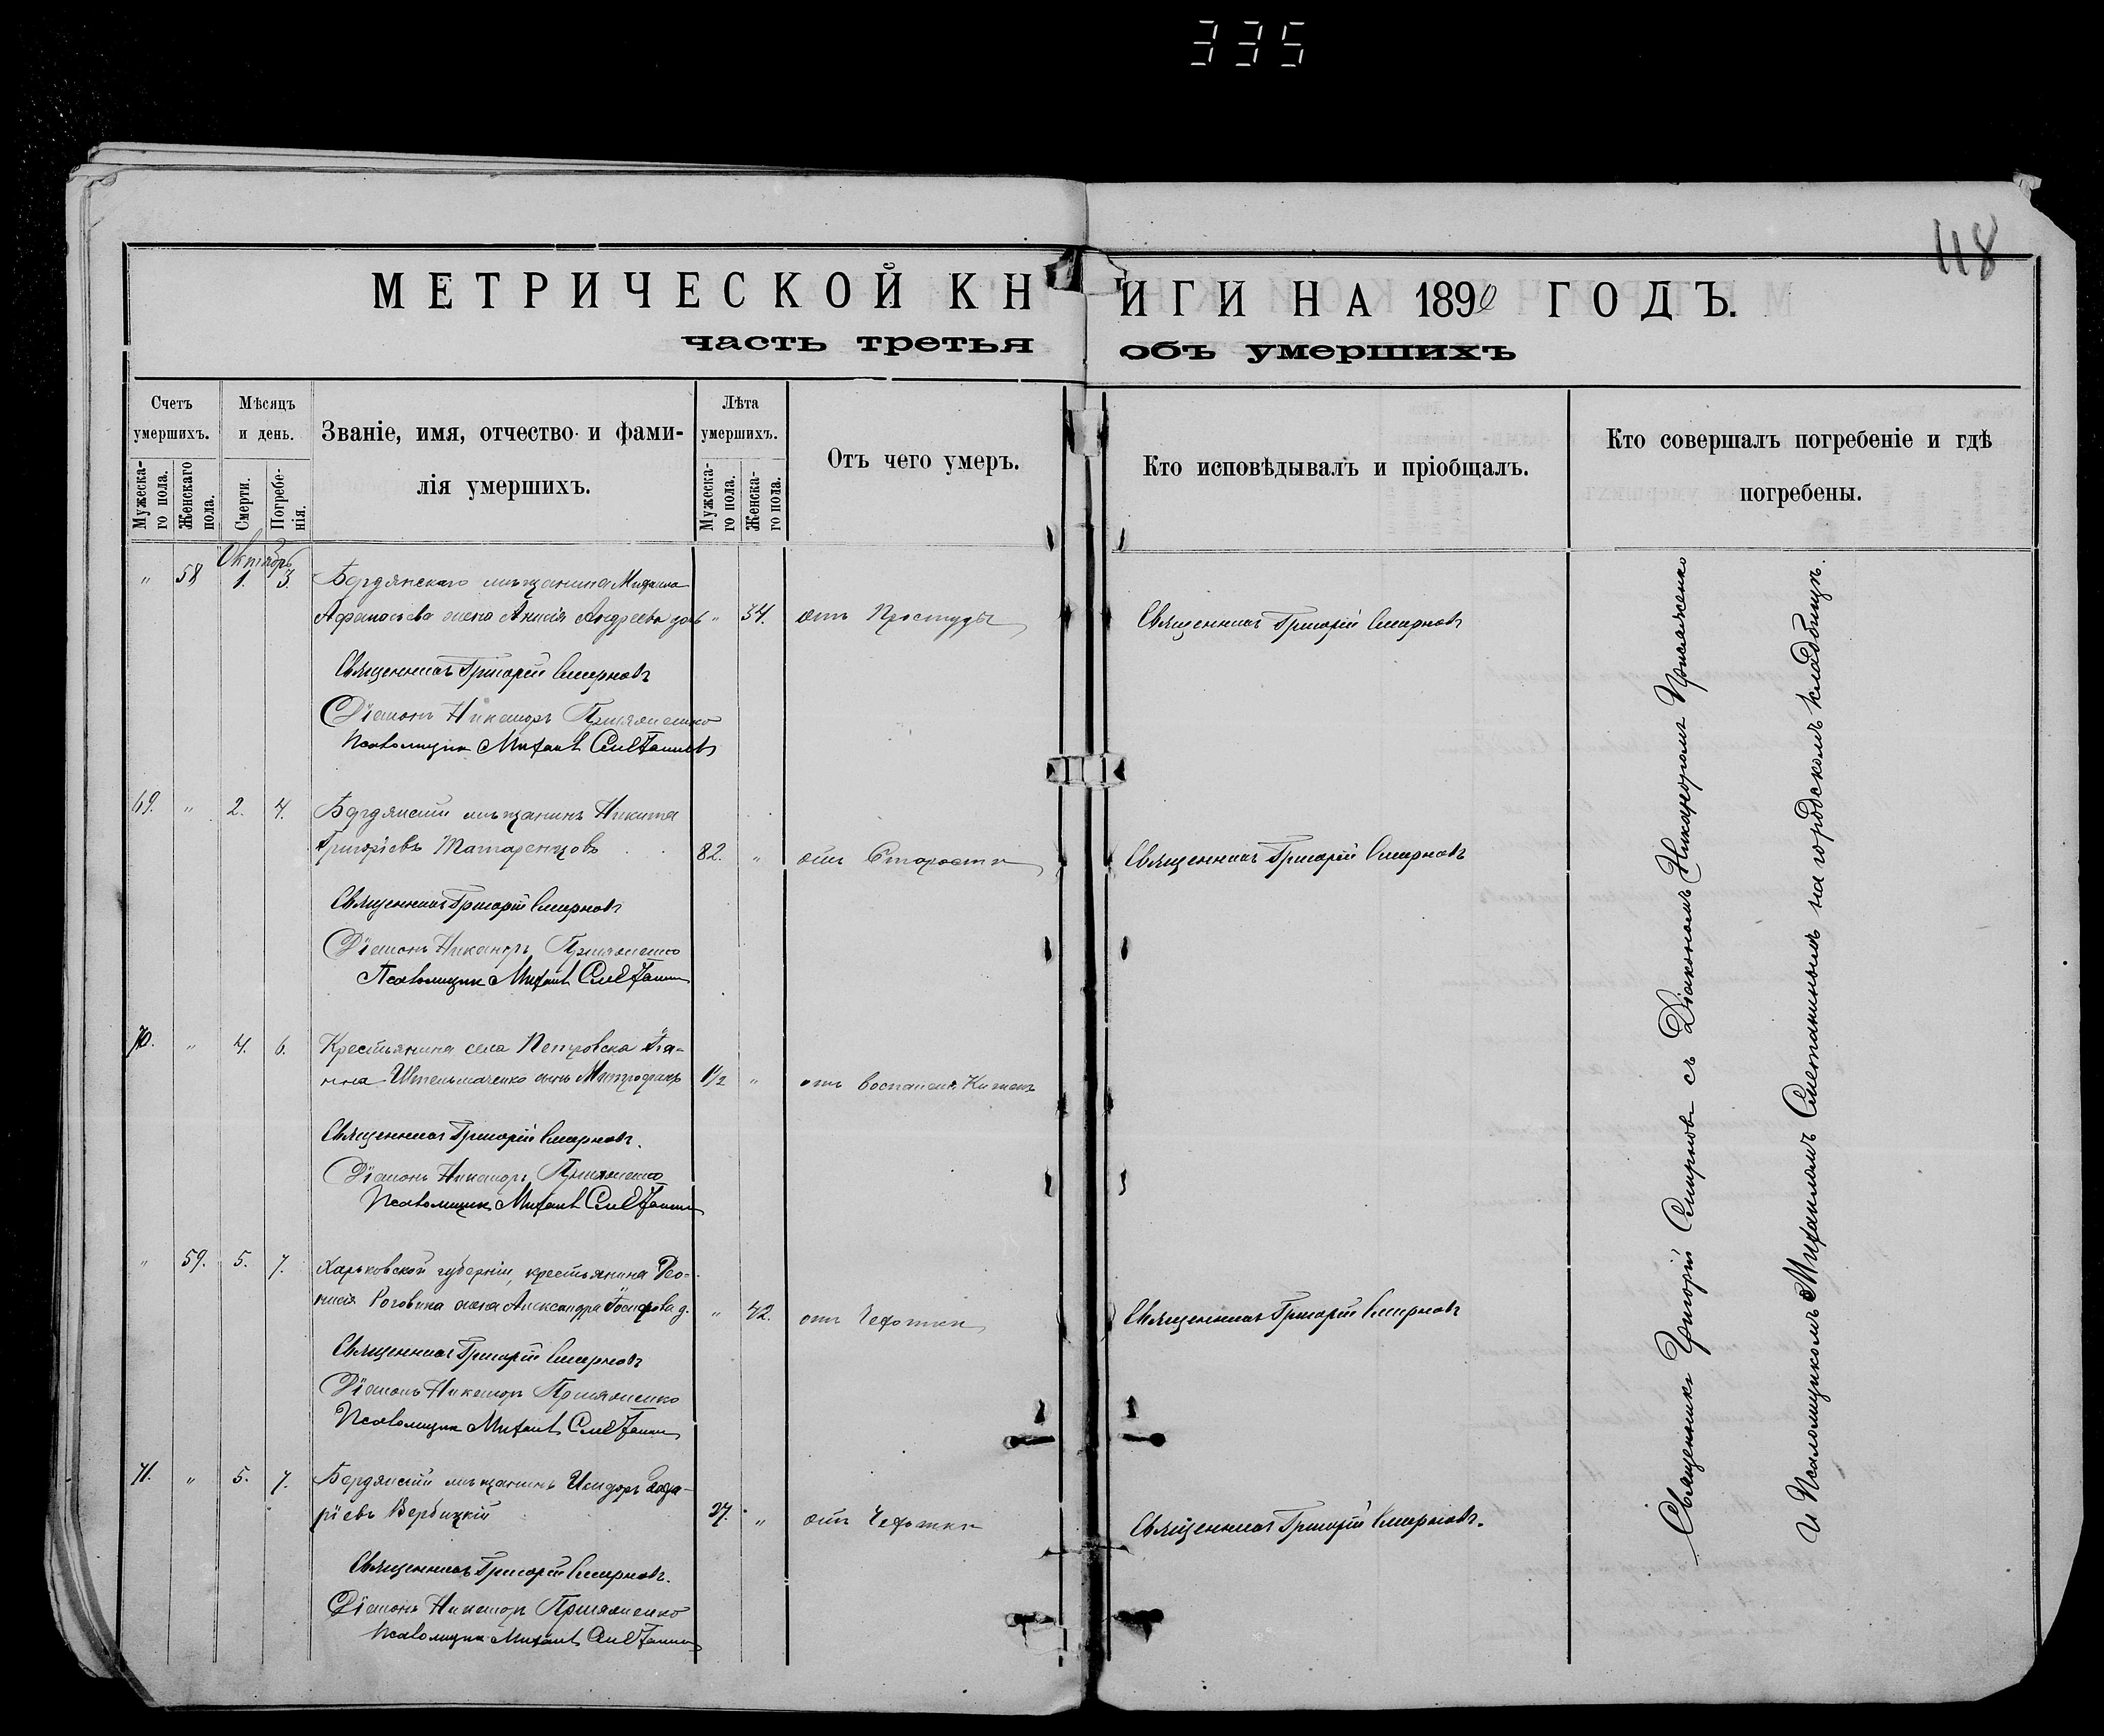 335
118
МЕТРИЧЕСКОЙ КНИГИ НА 1890 ГОДЪ.
часть третья объ умершихъ
Счетъ умершихъ.
Мужеска-го пола.
Женскаго пола.
Мѣсяцъ и день.
Смерти.
Погребе-нія.
Званіе, имя, отчество и фами-
лія умершихъ.
Лѣта умершихъ.
Мужеска-го пола.
Женска-го пола.
Отъ чего умеръ.
Кто исповѣдывалъ и пріобщалъ.
Кто совершалъ погребеніе и гдѣ
погребены.
Октябрь
" 58 1. 3. Бердянскаго мѣщанина Михаила
Афанасьева жена Анисія Андреева " 34. отъ Простуды Священникъ Григорій Смирновъ
Священникъ Григорій Смирновъ
Діаконъ Никаноръ
Псаломщикъ Михаилъ Сметанинъ
69. " 2. 4. Бердянскій мѣщанинъ Никита
Григоріевъ Татаренцовъ 82. " отъ Старости Священникъ Григорій Смирновъ
Священникъ Григорій Смирновъ
Діаконъ Никаноръ
Псаломщикъ Михаилъ Сметанинъ
70. " 4. 6. Крестьянина села Петровска
сынъ Митрофанъ 1/2 " отъ воспален. Кишекъ
Священникъ Григорій Смирновъ.
Діаконъ Никаноръ
Псаломщикъ Михаилъ Сметанинъ
" 59. 5. 7. Харьковской губерніи, крестьянина Ѳео-
Роговина жена Александра Іосифова " 42. отъ Чахотки Священникъ Григорій Смирновъ
Священникъ Григорій Смирновъ
Діаконъ Никаноръ
Псаломщикъ Михаилъ Сметанинъ
71. " 5. 7. Бердянскій мѣщанинъ Исидоръ
Вербицкій 37. " отъ Чахотки Священникъ Григорій Смирновъ.
Священникъ Григорій Смирновъ.
Діаконъ Никаноръ
Псаломщикъ Михаилъ Сметанинъ
Священникъ Григорій Смирновъ съ Діакономъ Никаноромъ
и Псаломщикомъ Михаиломъ Сметанинымъ на городскомъ кладбищѣ.